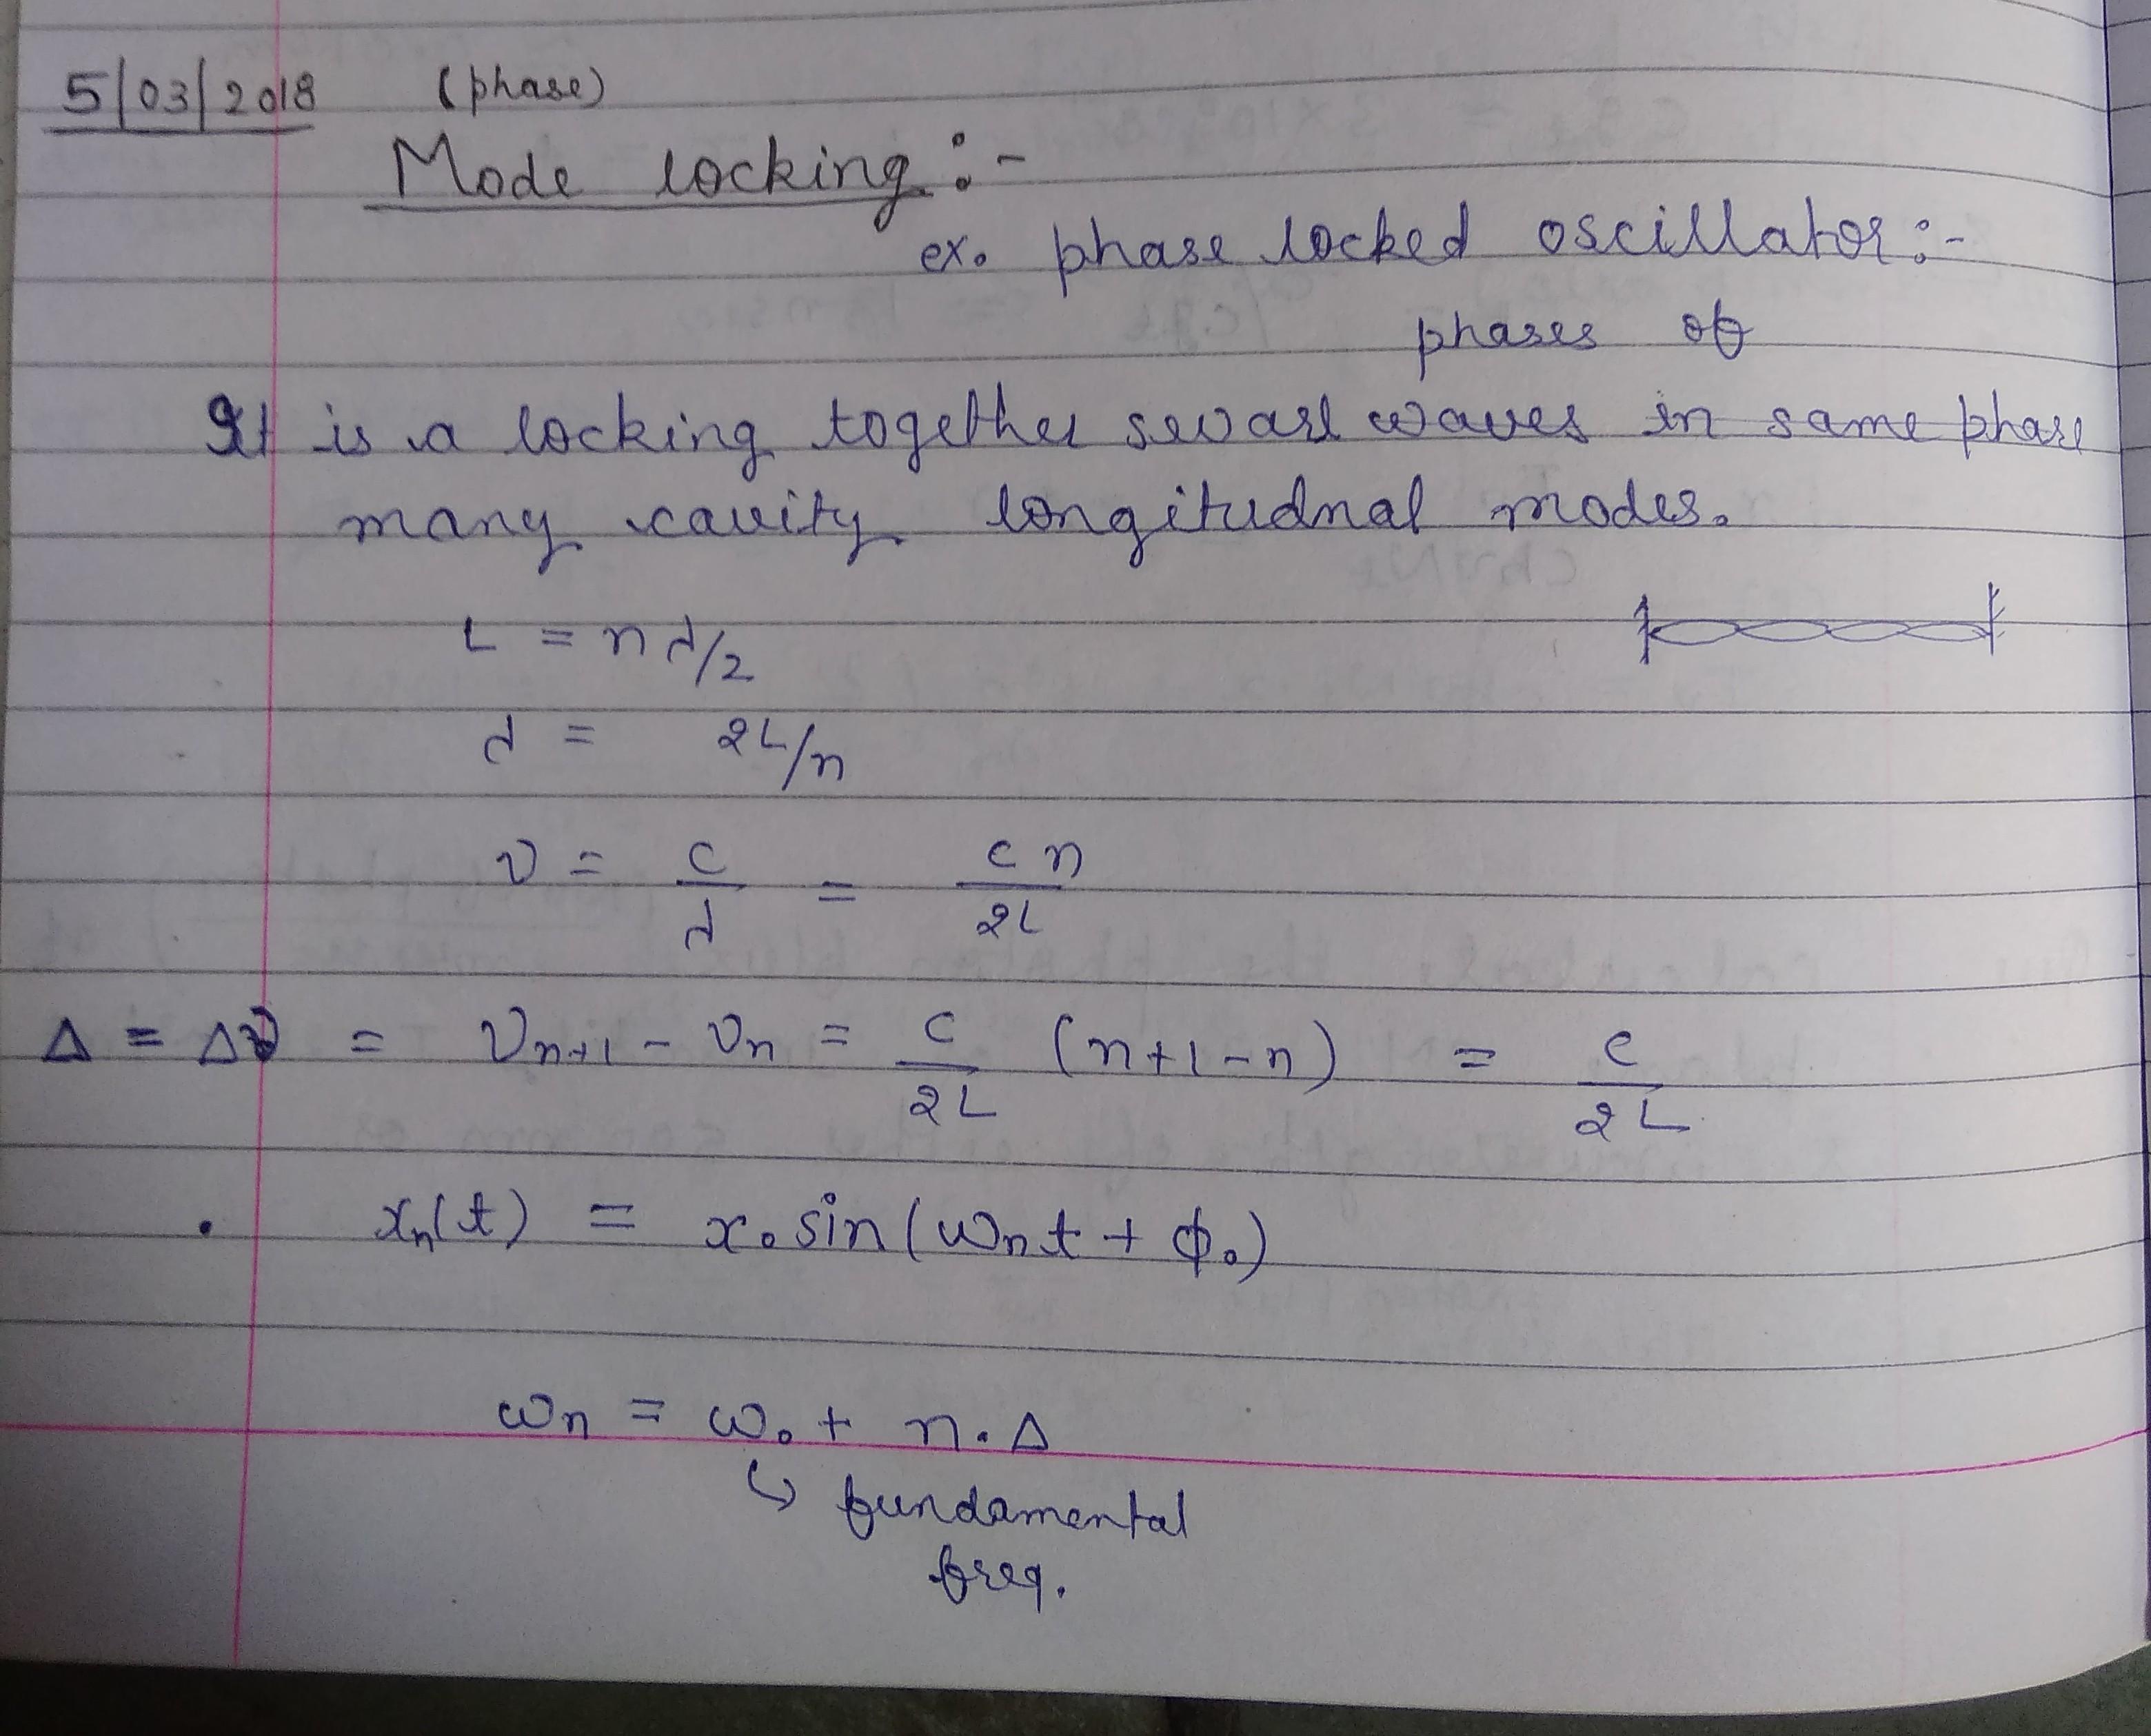 5/03/2018 (phase)
Mode locking :-
ex. phase locked oscillator :-
phases of
It is a locking together sevarl waves in same phase
many cavity longitudnal modes.
L = n λ/2
λ = 2L/n
ν = c/λ = cn/2L
Δ = Δν = νn+1 - νn = c/2L (n+1-n) = c/2L
. xn(t) = x₀ sin(ωnt + φ₀)
ωn = ω₀ + n.Δ
↳ fundamental
freq.